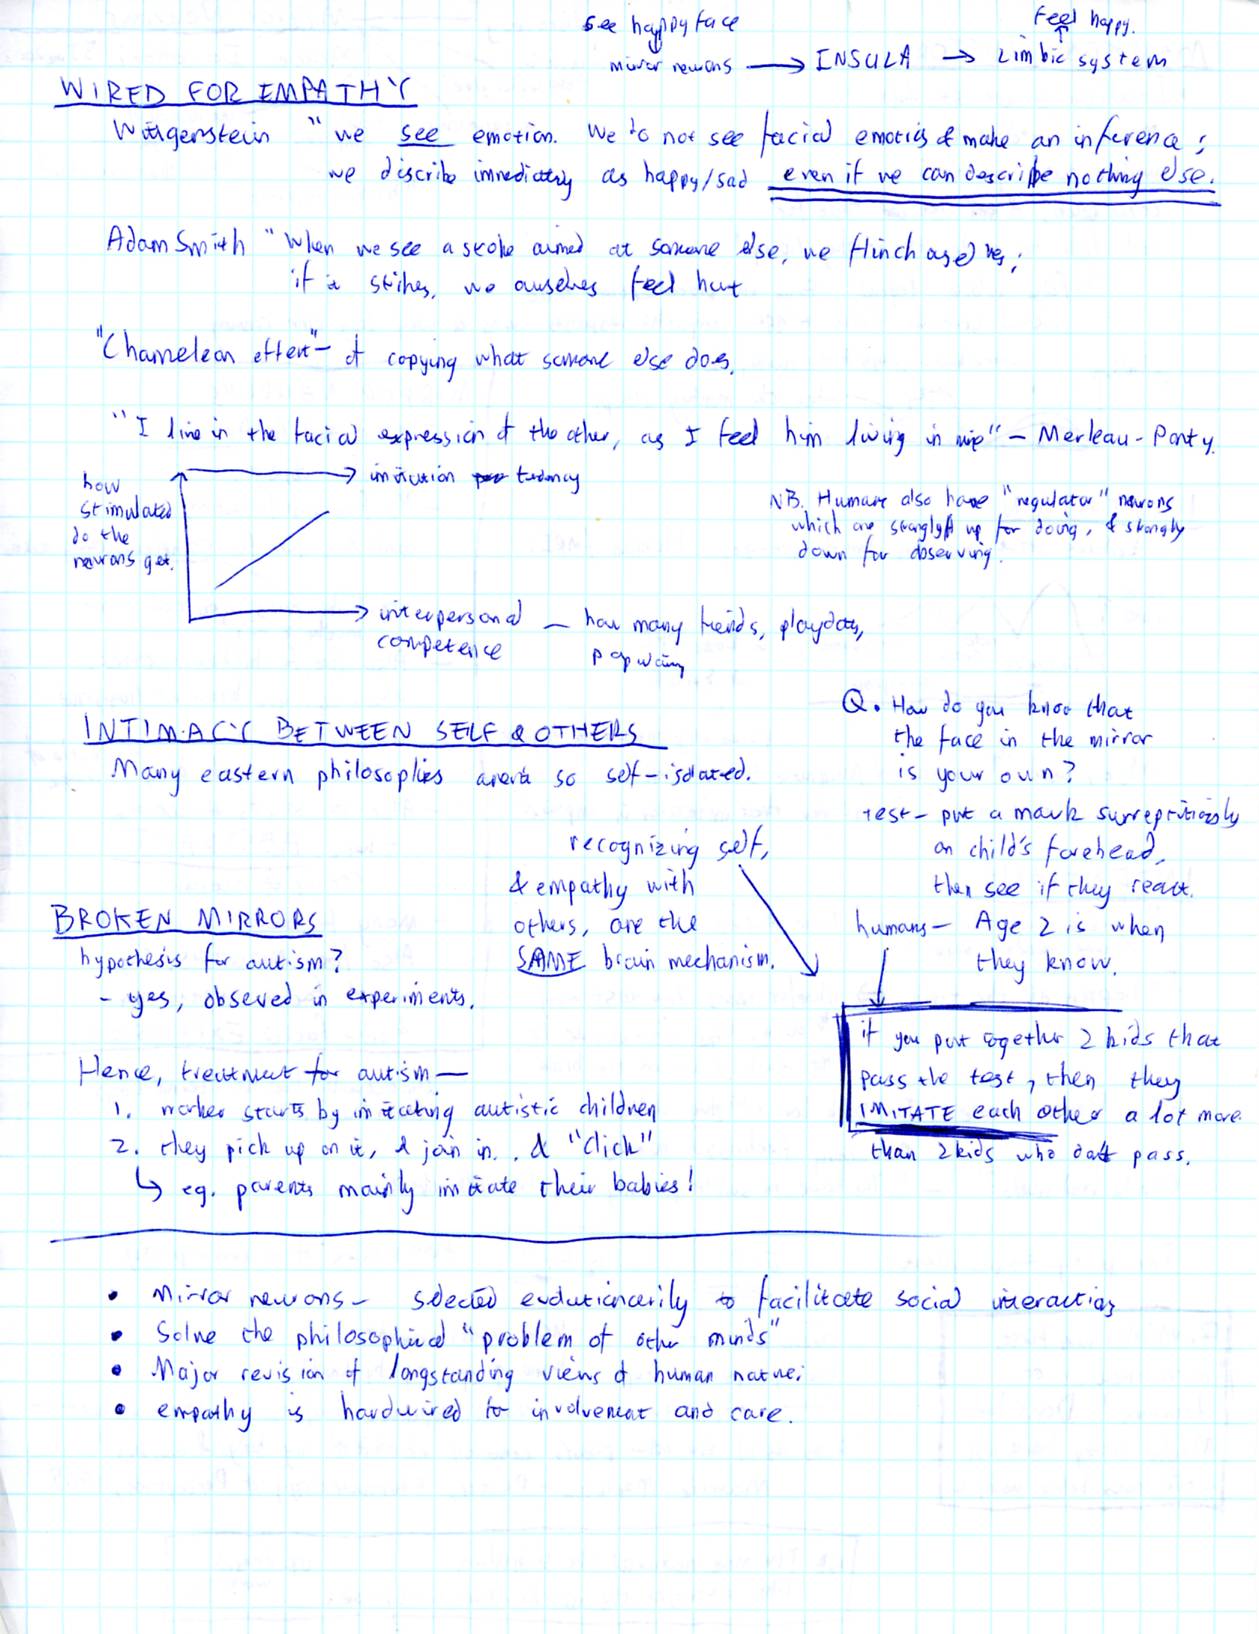 see happy face
Feel happy.
mirror neurons → INSULA → Limbic system
WIRED FOR EMPATHY
Wittgenstein "we see emotion. We do not see facial emotics & make an inference;
we describe immediately as happy/sad even if we can describe nothing else.
Adam Smith "When we see a stroke aimed at someone else, we flinch ourselves;
if it strikes, we ourselves feel hurt
"Chameleon effect" - of copying what someone else does.
"I live in the facial expression of the other, as I feel him living in me" - Merleau-Ponty.
how
stimulated
do the
neurons get.
imitation tendency
NB. Humans also have "regulator" neurons
which are strongly up for doing, & strongly
down for observing.
interpersonal
competence
— how many friends, playdates,
popularity
INTIMACY BETWEEN SELF & OTHERS
Many eastern philosophies aren't so self-isolated.
Q. How do you know that
the face in the mirror
is your own?
test - put a mark surreptitiously
on child's forehead,
then see if they react.
humans - Age 2 is when
they know.
recognizing self,
& empathy with
others, are the
SAME brain mechanism.
if you put together 2 kids that
pass the test, then they
IMITATE each other a lot more
than 2 kids who don't pass.
BROKEN MIRRORS
hypothesis for autism?
- yes, observed in experiments.
Hence, treatment for autism —
1. worker starts by imitating autistic children
2. they pick up on it, & join in.. & "click"
↳ eg. parents mainly imitate their babies!
• Mirror neurons - selected evolutionarily to facilitate social interaction;
• Solve the philosophical "problem of other minds"
• Major revision of longstanding views of human nature;
• empathy is hardwired for involvement and care.